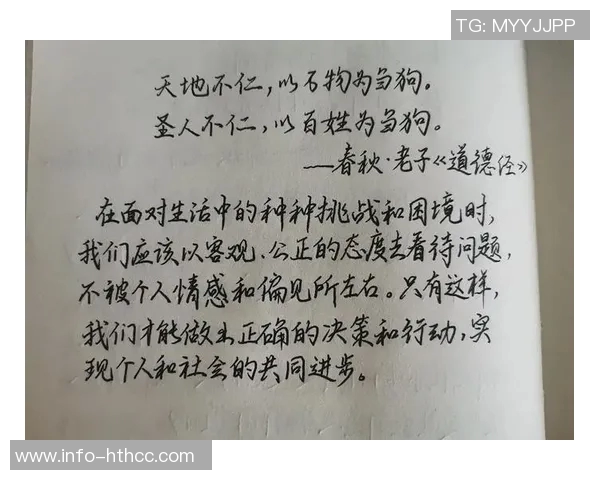 TG: MYYJJPP
天地不仁，以万物为刍狗。
圣人不仁，以百姓为刍狗。
——春秋·老子《道德经》
在面对生活中的种种挑战和困境时，
我们应该以客观、公正的态度去看待问题，
不被个人情感和偏见所左右。只有这样，
我们才能做出正确的决策和行动，实
现个人和社会的共同进步。
www.info-hthcc.com